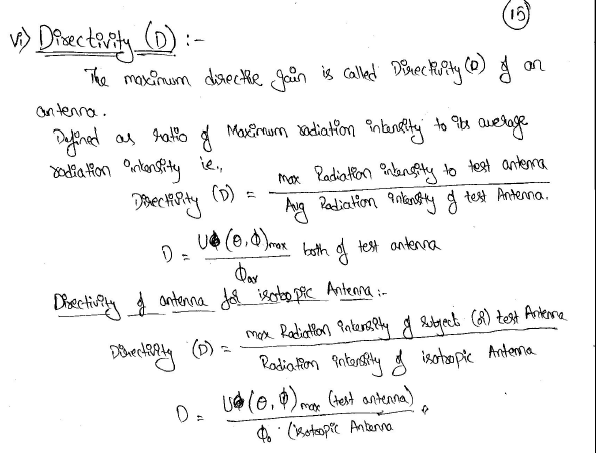 15
vi) Directivity (D) :-
The maximum directive gain is called Directivity (D) of an
antenna.
Defined as ratio of Maximum radiation intensity to its average
radiation intensity ie.,
Directivity (D) = max Radiation intensity to test antenna / Avg Radiation intensity of test Antenna.
D = Uϕ(θ, ϕ)max / ϕav both of test antenna
Directivity of antenna for isotropic Antenna :-
Directivity (D) = max Radiation intensity of subject (or) test Antenna / Radiation intensity of isotropic Antenna
D = Uϕ(θ, ϕ) max (test antenna) / ϕ₀ (isotropic Antenna